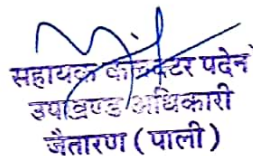 सहायक कलक्टर पदेन
उपाखण्ड अधिकारी
जैतारण (पाली)